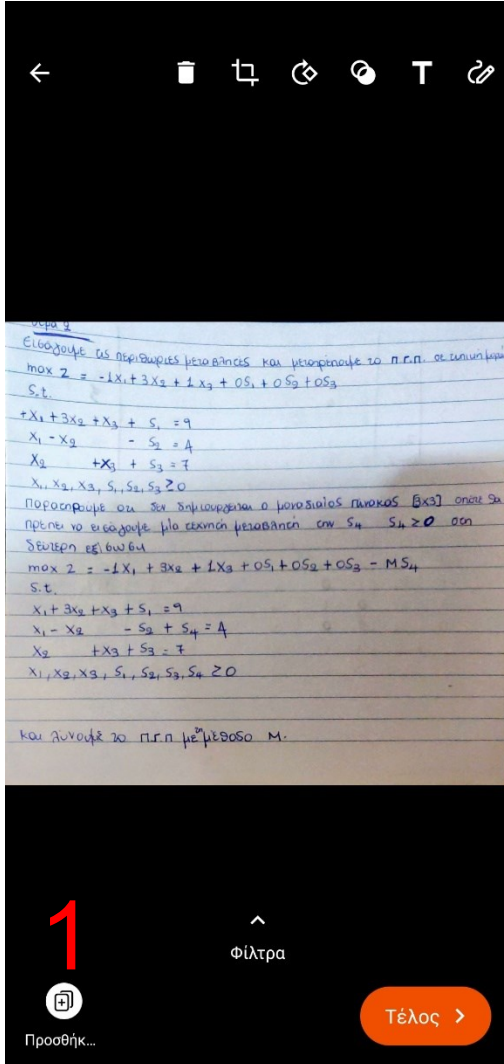 T
Θέμα 2
Εισάγουμε τις περιθώριες μεταβλητές και μετατρέπουμε το π.γ.π. σε τυπική μορφή
max z = -1x₁ + 3x₂ + 1x₃ + 0S₁ + 0S₂ + 0S₃
s.t.
+x₁ + 3x₂ + x₃ + S₁ = 9
x₁ - x₂ - S₂ = 4
x₂ + x₃ + S₃ = 7
x₁, x₂, x₃, S₁, S₂, S₃ ≥ 0
Παρατηρούμε ότι δεν δημιουργείται ο μοναδιαίος πίνακας [3x3] οπότε θα
πρέπει να εισάγουμε μία τεχνητή μεταβλητή την S₄ S₄ ≥ 0 στη
δεύτερη εξίσωση
max z = -1x₁ + 3x₂ + 1x₃ + 0S₁ + 0S₂ + 0S₃ - MS₄
s.t.
x₁ + 3x₂ + x₃ + S₁ = 9
x₁ - x₂ - S₂ + S₄ = 4
x₂ + x₃ + S₃ = 7
x₁, x₂, x₃, S₁, S₂, S₃, S₄ ≥ 0
και λύνουμε το π.γ.π με τη μέθοδο Μ.
1
Φίλτρα
Προσθήκ...
Τέλος